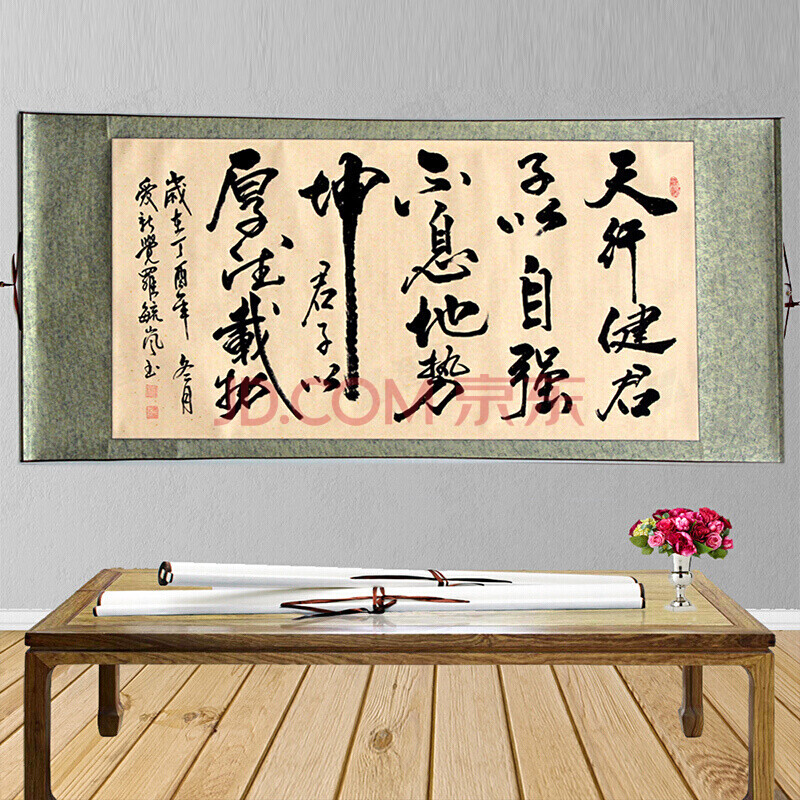 天行健君
子以自强
不息地势
坤君子以
厚德载物
歲在丁酉年冬月
爱新覺羅毓嵐书
JD.COM 京东